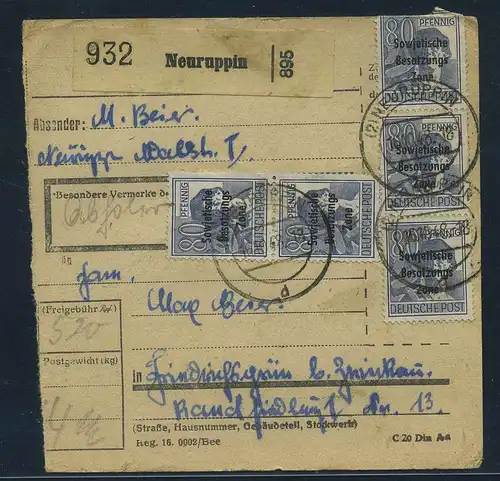 932 Neuruppin 895
80 PFENNIG
Sowjetische
Besatzungs
Zone
DEUTSCHE POST
Absender: M. Beier
80 PFENNIG
Sowjetische
Besatzungs
Zone
DEUTSCHE POST
Besondere Vermerke des
80 PFENNIG
Sowjetische
Besatzungs
Zone
DEUTSCHE POST
80 PFENNIG
Sowjetische
Besatzungs
Zone
DEUTSCHE POST
80
Sowjetische
Besatzungs
Zone
DEUTSCHE POST
An
Fam.
Max Beier
(Freigebühr
Postgewicht (kg)
in Friedrichsgrün b. Zwickau
Nr. 13.
(Straße, Hausnummer, Gebäudeteil, Stockwerk)
Reg. 16. 0902/Bee C 20 Din A6